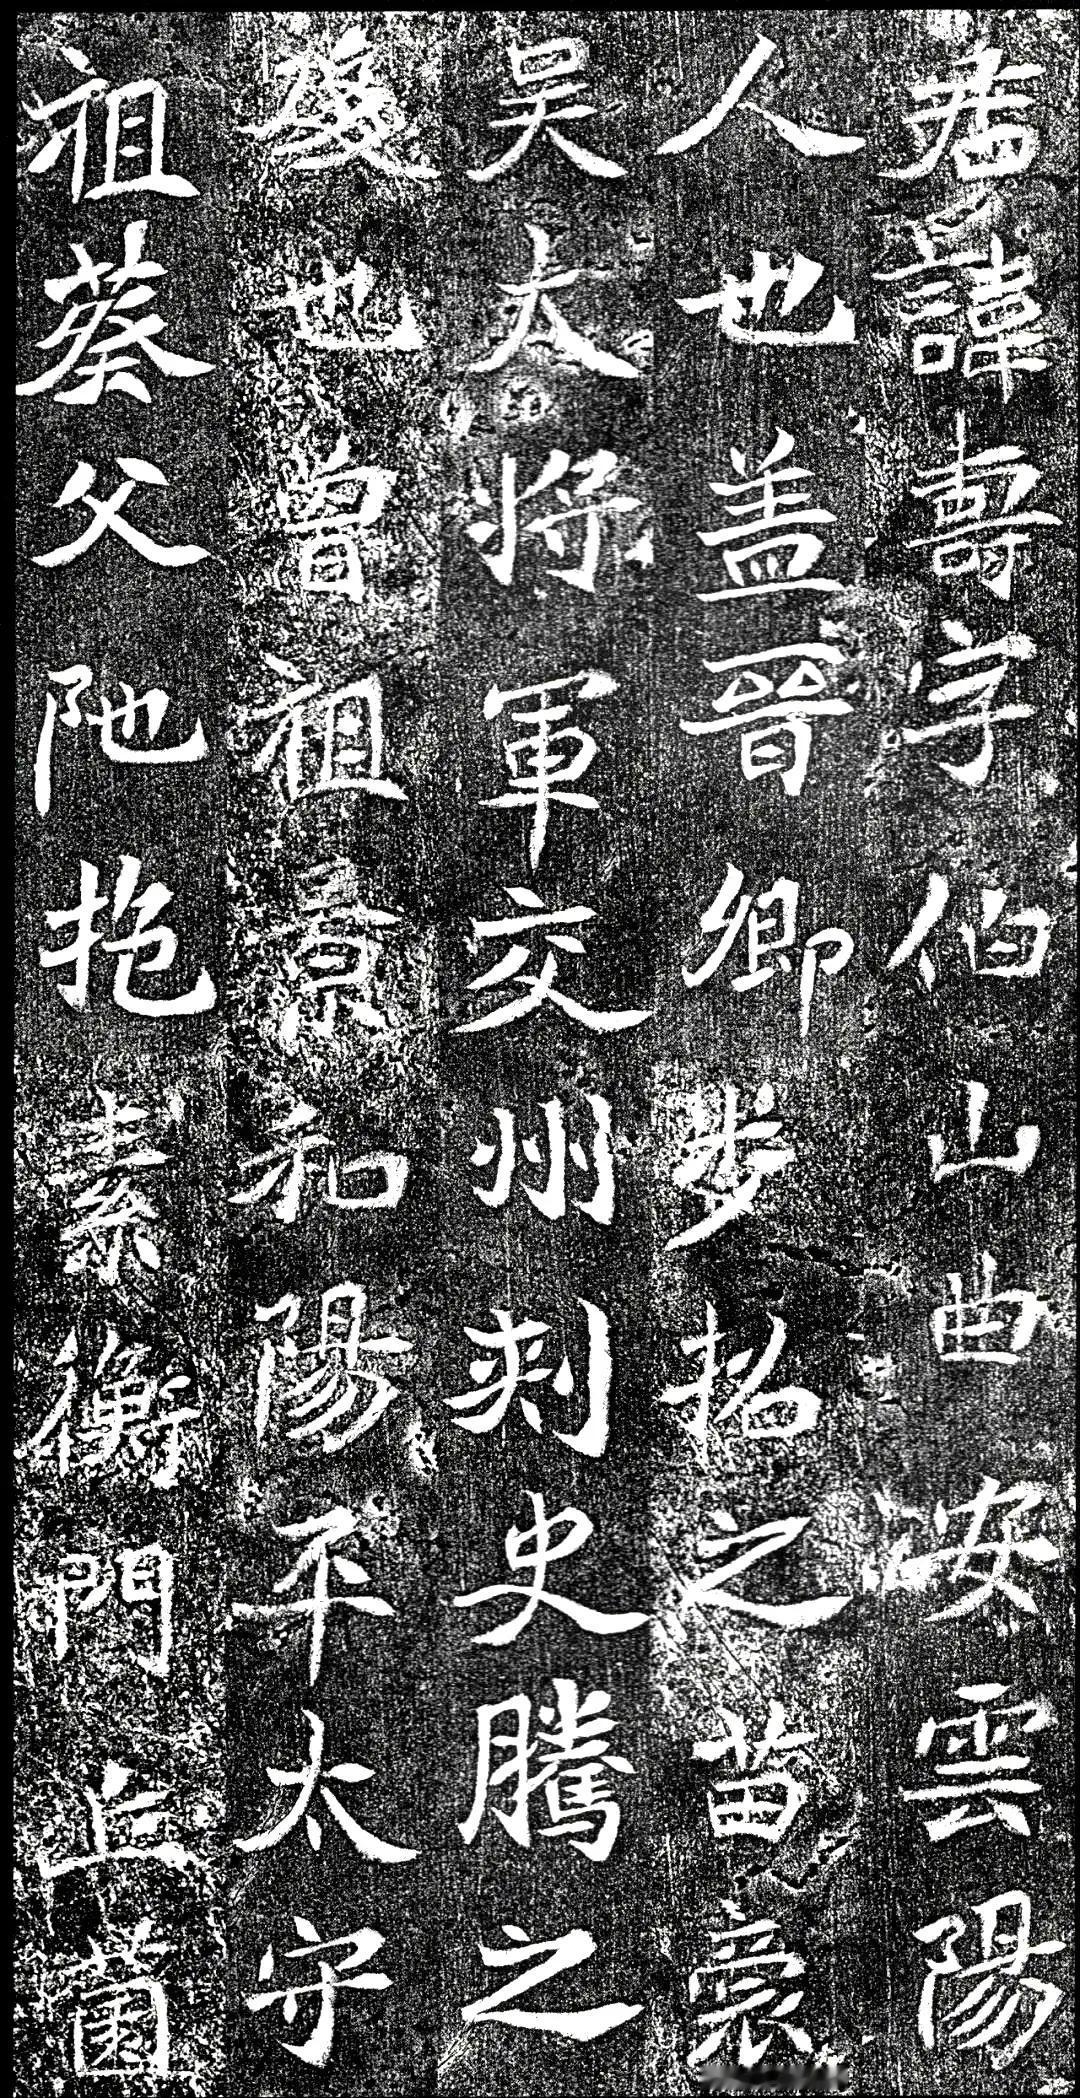 君諱壽字伯山曲安雲陽
人也盖晉卿步招之苗裔
吳大將軍交州刺史騰之
也曾祖景和陽平太守
祖葵父阤抱素衡門丘薗